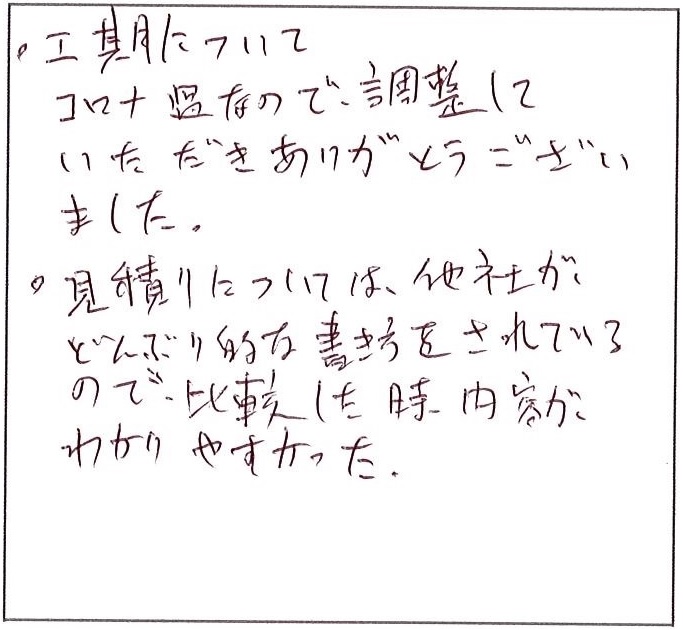 ・工期について
コロナ禍なので、調整して
いただきありがとうござい
ました。
・見積りについては、他社が
どんぶり的な書き方をされている
ので、比較した時、内容が
わかりやすかった。